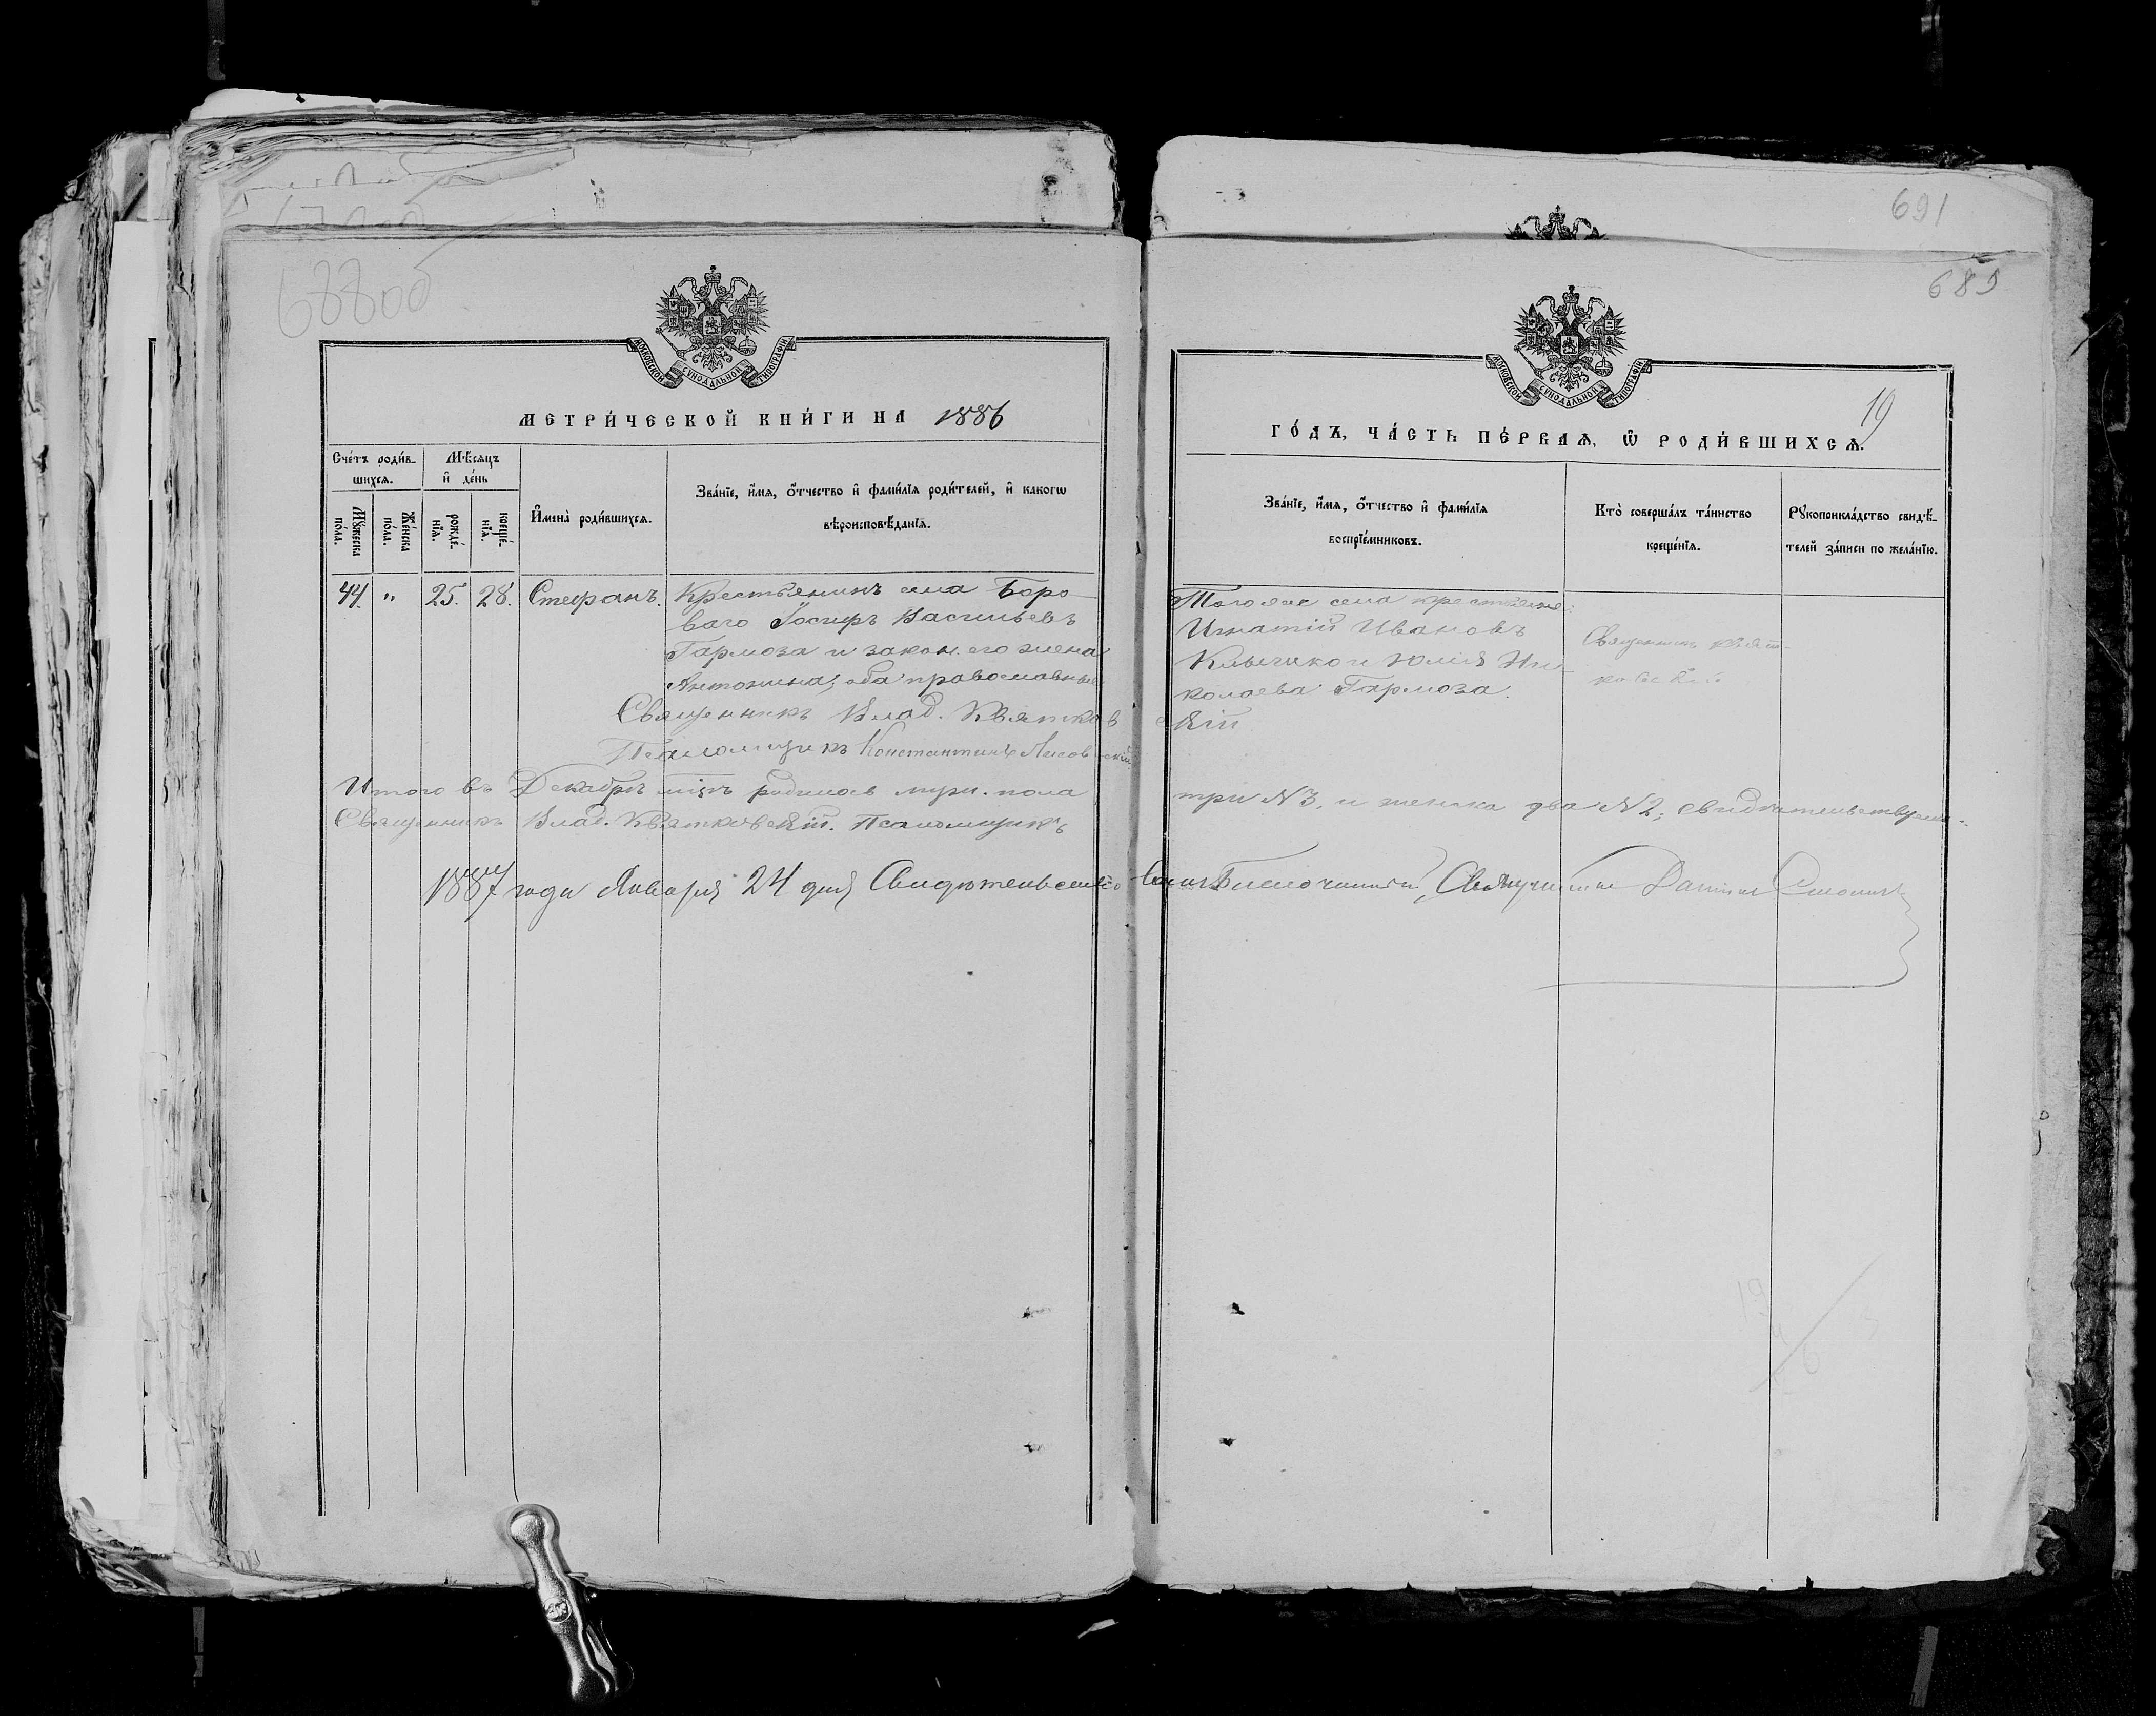 691
688 об
689
МОСКОВСКОЙ СУНОДАЛЬНОЙ ТИПОГРАФІИ
МЕТРИ́ЧЕСКОЙ КНИ́ГИ НА 1886
Сче́тъ роди́в-
шихся.
Мꙋ́жеска по́ла.
Же́нска по́ла.
Мѣ́сяцъ
и҆ де́нь
рожде́-
нїя.
креще́-
нїя.
И҆мена̀ роди́вшихся.
Зва́нїе, и҆́мя, ѻ҆́тчество и҆ фами́лїя роди́телей, и҆ какогѡ
вѣроисповѣ́данїя.
44. " 25. 28. Стефанъ.
Крестьянинъ села Боро-
ваго Іосифъ Васильевъ
Гармоза и закон. его жена
Антонина; оба православные
Священникъ Влад. Квятков
Псаломщикъ Константинъ Лисовскій
Итого въ Декабрѣ мцѣ родилось муж. пола
Священникъ Влад. Квятковскій. Псаломщикъ
1887 года Января 24 дня
МОСКОВСКОЙ СУНОДАЛЬНОЙ ТИПОГРАФІИ
19
ГО́ДЪ, ЧА́СТЬ ПЕ́РВАЯ, Ѡ҆ РОДИ́ВШИХСЯ.
Зва́нїе, и҆́мя, ѻ҆́тчество и҆ фами́лїя
воспрїе́мниковъ.
Кто̀ соверша́лъ та́инство
креще́нїя.
Рꙋкоприкла́дство свидѣ́-
телей за́писи по жела́нїю.
Тогоже села крестьяне:
Игнатій Ивановъ
Клычко и Юлія Ни-
колаева Гармоза.
скій
Священникъ Квят-
ковскій
три №3, и женска два №2; свидѣтельствуемъ:
Благочинный, Священникъ